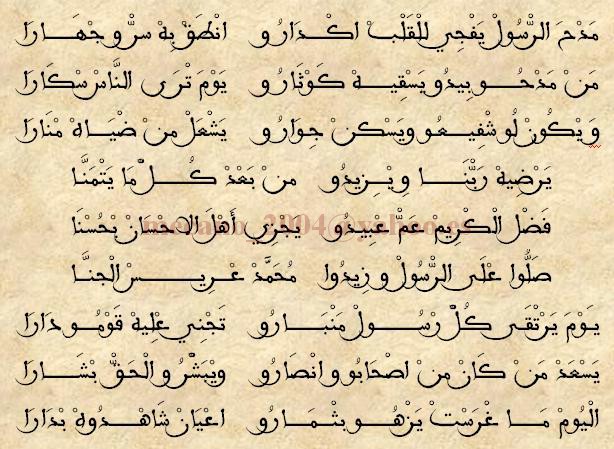 مَدْحَ الرَّسُولْ يَفْجِي لِلْقَلْبْ اكْدَارُو انْطَقْ بِهْ سرّ و جْهَارَا
مَنْ مَدْحُو بِيدُو يَسْقِيهْ كَوْثَارُو يَوْمَ تْرَى النَّاسْ سْكَارَا
وَ يْكُونْ لُو شْفِيعُو وِيَسْكنْ جِوَارُو يَشْعَلْ منْ ضْيَاهْ مْنَارَا
يَرْضِيهْ رَبّْنَا و يْزِيدُو منْ بَعْدْ كُلّْ مَا يَتْمَنَّا
فَضْل الْكْرِيمْ عَمّْ عبِيدُو يجْزِي أَهْلَ الاحْسَانْ بْحُسْنَا
صَلُّوا عْلَى الرَّسُولْ و زِيدُوا مُحَمَّدْ عْرِيسْ الْجنَّا
يَوْمَ يَرْتقَى كُلّْ رْسُولْ مَنْبَارُو تَجْنِي عْلِيهْ قَوْمُو دَارَا
يَسْعَدْ مَنْ كَانْ منْ اصْحَابُو و انْصَارُو ويْبَشّْرُو الْحَقّْ بْشَارَا
الْيُومْ مَا غْرَسْتْ يَزْهُو بثْمَارُو اعْيَانْ شَاهْدُوهْ بْدَارَا